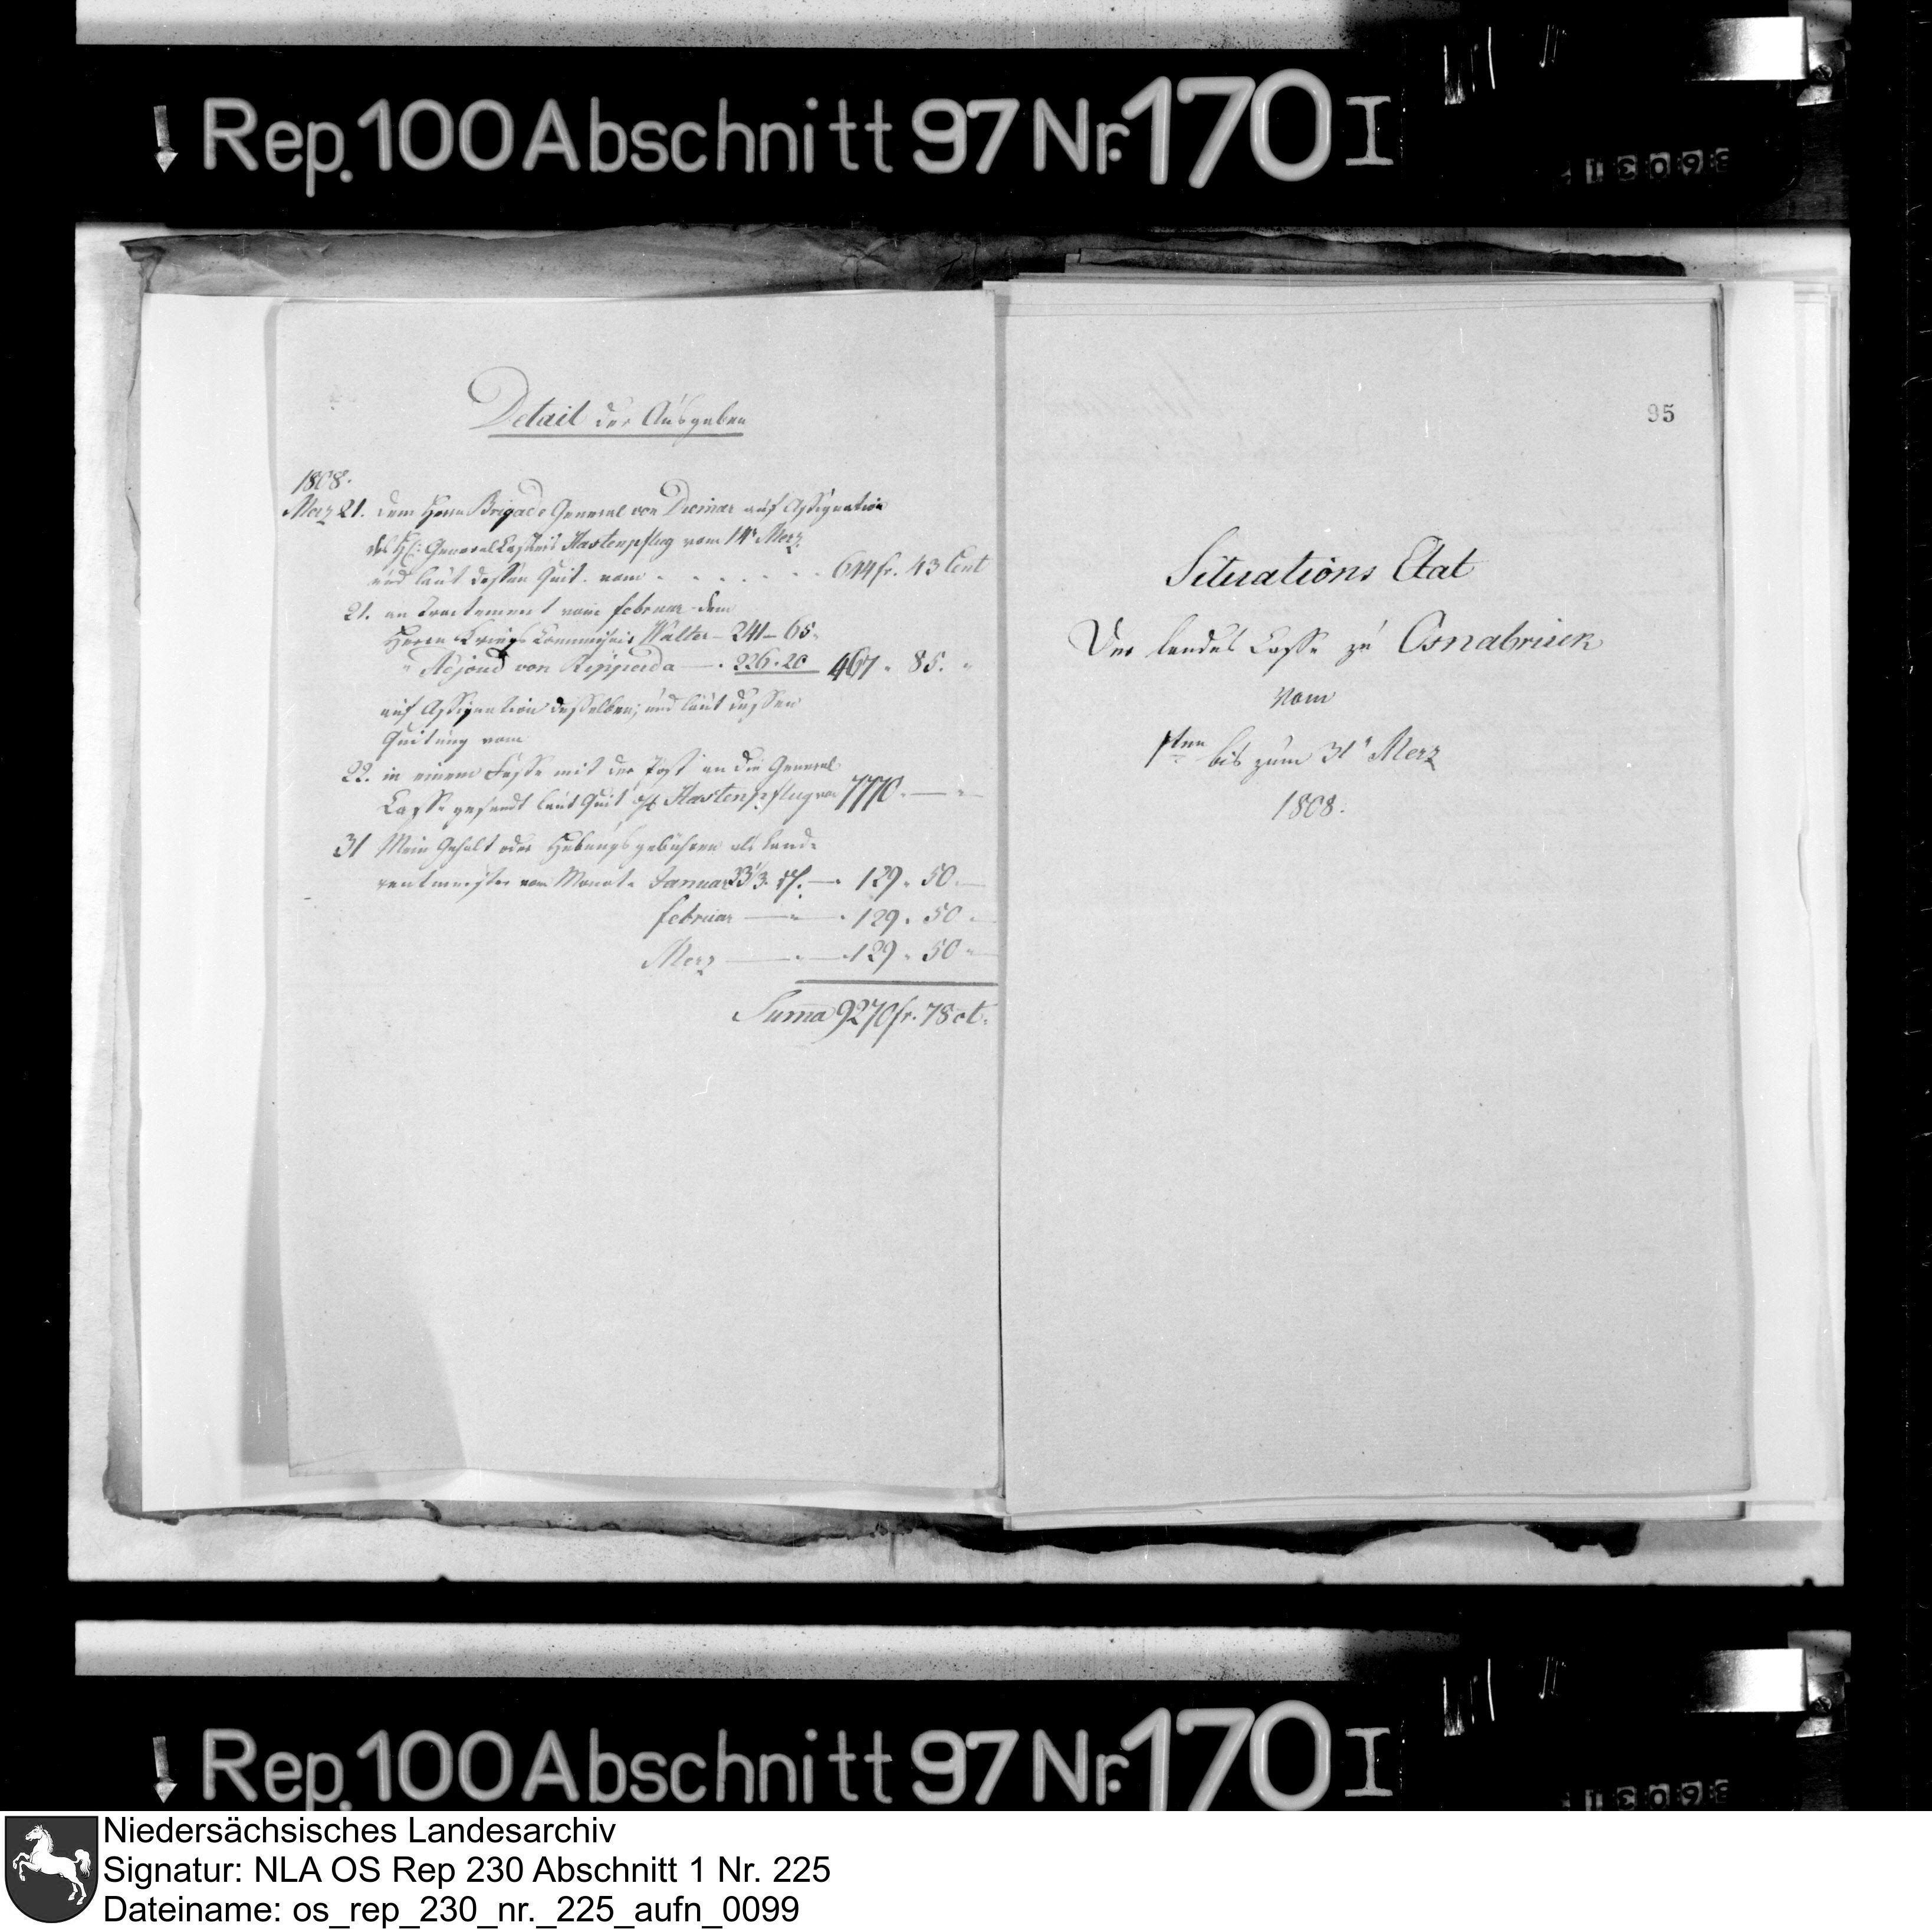 Rep. 100 Abschnitt 97 Nr. 170 I
Detail der Ausgaben
1808.
Merz 21. dem Herrn Brigade General von Diemar auf Assignation
des H: General Cassirers Hastenpflug vom 14t Merz
und laut dessen Quit. vom . . . . . . 644 fr. 43 Cent
21. an Tractement vom Februar dem
Herrn Kriegs Commissair Walter – 241 – 65.
" Adjoud von Ripperda — . 226 . 20 467 " 85. "
auf Assignation desselben, und laut dessen
Quitung vom
22. in einem Fasse mit der Post an die General
Casse gesandt laut Quit Hastenpflug 7770. — "
31 Mein Gehalt oder Hebungsgebühren als Land-
rentmeister vom Monat Januar 33 1/3 — 129 . 50. —
Februar — " — . 129 . 50 . —
Merz — . — . 129 . 50 " —
Suma 9270 fr. 78 ct.
95
Situations Etat
Der Landes Casse zu Osnabrück
vom
1sten bis zum 31t Merz
1808.
Rep. 100 Abschnitt 97 Nr. 170 I
Niedersächsisches Landesarchiv
Signatur: NLA OS Rep 230 Abschnitt 1 Nr. 225
Dateiname: os_rep_230_nr._225_aufn_0099